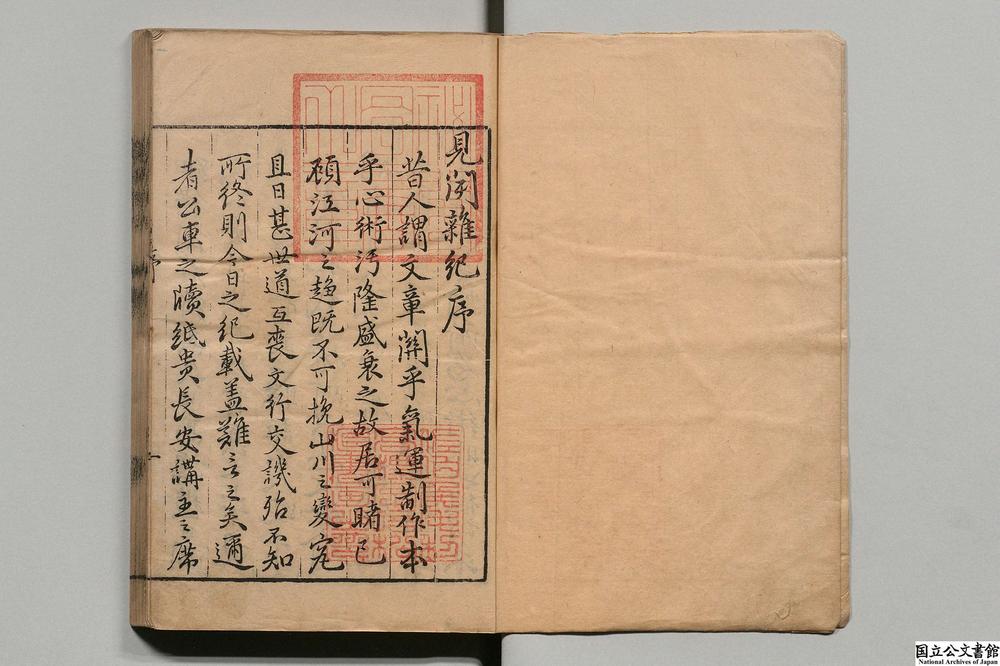 見聞雜紀序
昔人謂文章關乎氣運制作本
乎心術汚隆盛衰之故居可睹已
頋江河之趋既不可挽山川之變宄
且日甚世道互喪文行交譏殆不知
所終則今日之紀載盖難言之矣邇
者公車之牘紙贵長安講主之席
序
一
国立公文書館
National Archives of Japan